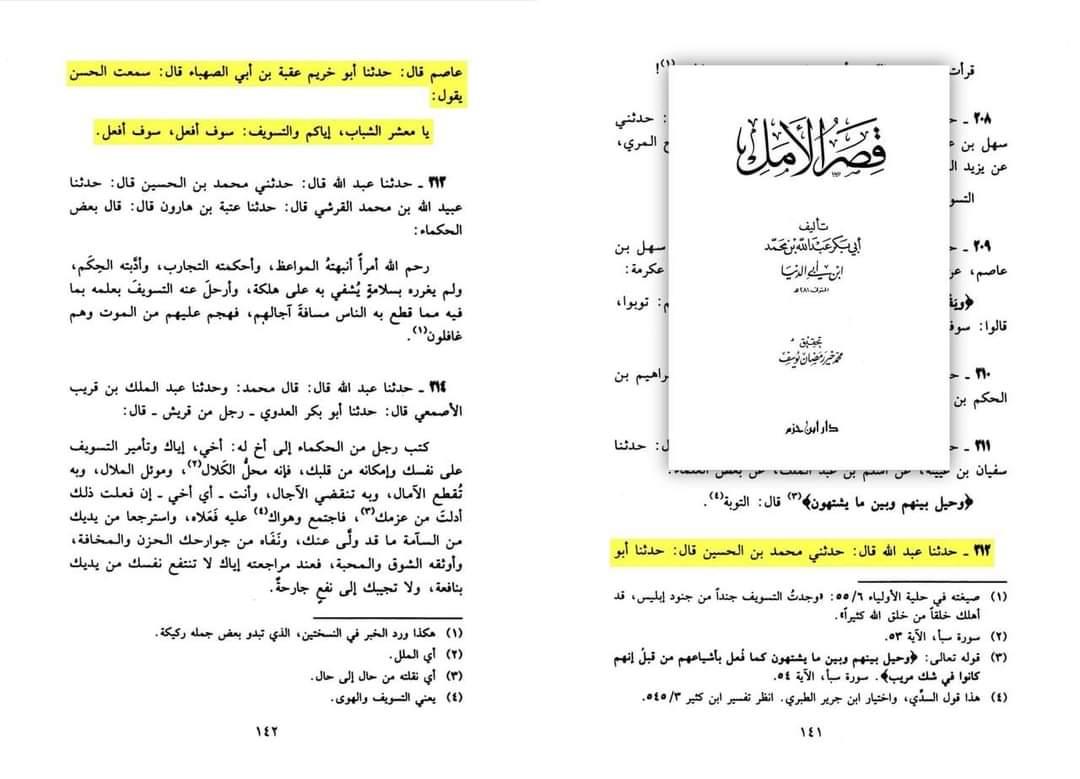 قرأت
!(١)
٢٠٨ ـ حد
: حدثني
سهل بن ع
ح المري،
عن يزيد الر
التسو
٢٠٩ ـ حد
سهل بن
عاصم، عن
عكرمة:
م: توبوا،
قالوا: سوف
٢١٠ ـ حد
براهيم بن
الحكم بن
٢١١ ـ حد
ل: حدثنا
سفيان بن عيينة، عن أسلم بن عبد الملك، عن بعض العلماء:
﴿وحيل بينهم وبين ما يشتهون﴾(٣) قال: التوبة(٤).
٢١٢ ـ حدثنا عبد الله قال: حدثني محمد بن الحسين قال: حدثنا أبو
(١) صيغته في حلية الأولياء ٥٥/٦: «وجدتُ التسويف جنداً من جنود إبليس، قد
أهلك خلقاً من خلق الله كثيراً».
(٢) سورة سبأ، الآية ٥٣.
(٣) قوله تعالى: ﴿وحيل بينهم وبين ما يشتهون كما فُعل بأشياعهم من قبلُ إنهم
كانوا في شك مريب﴾. سورة سبأ، الآية ٥٤.
(٤) هذا قول السدِّي، واختيار ابن جرير الطبري. انظر تفسير ابن كثير ٥٤٥/٣.
١٤١
قِصَرُ الأَمَل
تأليف
أبي بكر عبد الله بن محمد
ابن أبي الدنيا
المتوفى ٢٨١ هـ
تحقيق
محمد خير رمضان يوسف
دار ابن حزم
عاصم قال: حدثنا أبو خريم عقبة بن أبي الصهباء قال: سمعت الحسن
يقول:
يا معشر الشباب، إياكم والتسويف: سوف أفعل، سوف أفعل.
٢١٣ ـ حدثنا عبد الله قال: حدثني محمد بن الحسين قال: حدثنا
عبيد الله بن محمد القرشي قال: حدثنا عتبة بن هارون قال: قال بعض
الحكماء:
رحم الله أمرأً أنبهتهُ المواعظ، وأحكمته التجارب، وأدَّبته الحِكَم،
ولم يغرره بسلامةٍ يُشفي به على هلكة، وأرحلَ عنه التسويفَ بعلمه بما
فيه مما قطع به الناس مسافةَ آجالهم، فهجم عليهم من الموت وهم
غافلون(١).
٢١٤ ـ حدثنا عبد الله قال: قال محمد: وحدثنا عبد الملك بن قريب
الأصمعي قال: حدثنا أبو بكر العدوي ـ رجل من قريش ـ قال:
كتب رجل من الحكماء إلى أخ له: أخي، إياك وتأمير التسويف
على نفسك وإمكانه من قلبك، فإنه محلُّ الكَلال(٢)، وموئل الملال، وبه
تُقطع الآمال، وبه تنقضي الآجال، وأنت ـ أي أخي ـ إن فعلت ذلك
أدلتَ من عزمك(٣)، فاجتمع وهواك(٤) عليه فَعَلاه، واسترجعا من يديك
من السآمة ما قد ولَّى عنك، ونَفَاه من جوارحك الحزن والمخافة،
وأوثقه الشوق والمحبة، فعند مراجعته إياك لا تنتفع نفسك من يديك
بنافعة، ولا تجيبك إلى نفعٍ جارحةٌ.
(١) هكذا ورد الخبر في النسختين، الذي تبدو بعض جمله ركيكة.
(٢) أي الملل.
(٣) أي نقلته من حال إلى حال.
(٤) يعني التسويف والهوى.
١٤٢